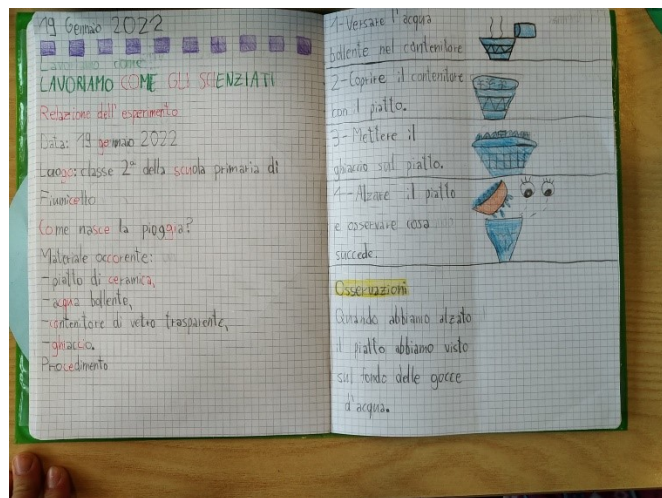 19 Gennaio 2022
LAVORIAMO COME GLI SCIENZIATI
Relazione dell'esperimento
Data: 19 gennaio 2022
Luogo: classe 2ª della scuola primaria di
Fiumicello
Come nasce la pioggia?
Materiale occorente:
-piatto di ceramica,
-acqua bollente,
-contenitore di vetro trasparente,
-ghiaccio.
Procedimento
1-Versare l'acqua
bollente nel contenitore
2-Coprire il contenitore
con il piatto.
3-Mettere il
ghiaccio sul piatto.
4-Alzare il piatto
e osservare cosa
succede.
Osservazioni
Quando abbiamo alzato
il piatto abbiamo visto
sul fondo delle gocce
d'acqua.